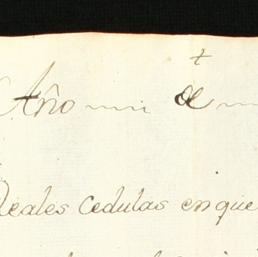 Año de
Reales cedulas en que